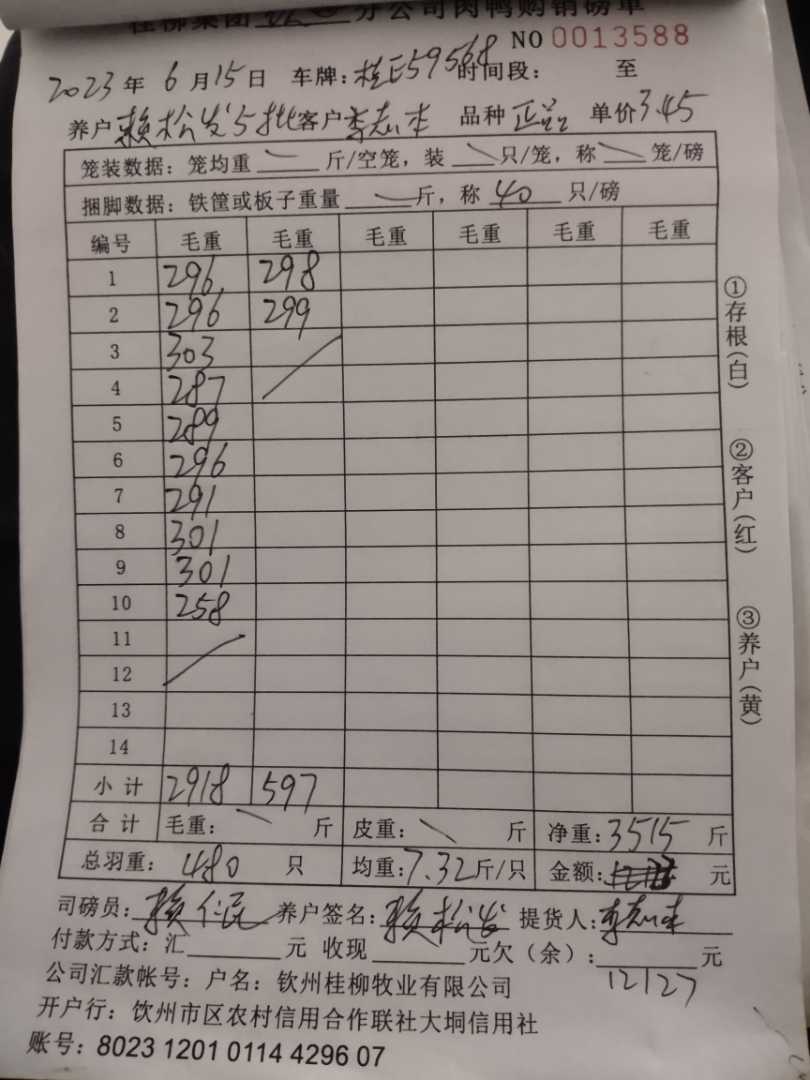 桂柳集团 分公司肉鸭购销磅单
NO 0013588
2023年6月15日 车牌:桂E59568 时间段: 至
养户 赖松发5批 客户 李志本 品种 正品 单价3.45
笼装数据:笼均重 斤/空笼,装 只/笼,称 笼/磅
捆脚数据:铁筐或板子重量 斤,称 40 只/磅
编号 毛重 毛重 毛重 毛重 毛重 毛重
1 296 298
2 296 299
3 303
4 287
5 289
6 296
7 291
8 301
9 301
10 258
11
12
13
14
小计 2918 597
合计 毛重: 斤 皮重: 斤 净重:3515 斤
总羽重: 480 只 均重:7.32斤/只 金额: 元
司磅员:赖仁民 养户签名:赖松发 提货人:李志本
付款方式:汇 元 收现 元欠(余): 元
12127
公司汇款帐号:户名:钦州桂柳牧业有限公司
开户行:饮州市区农村信用合作联社大垌信用社
账号:8023 1201 0114 4296 07
①存根(白)
②客户(红)
③养户(黄)